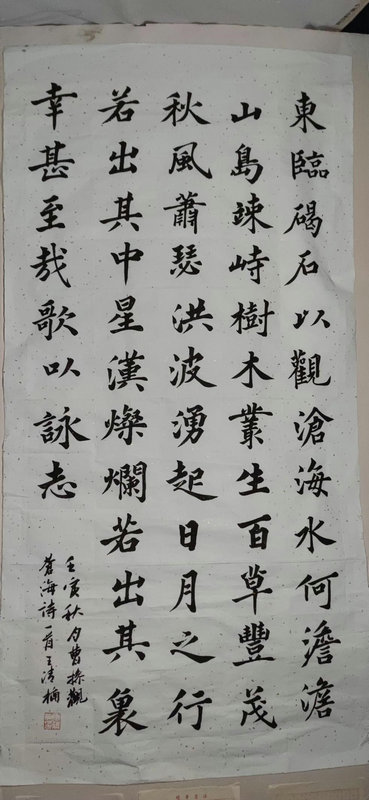 東臨碣石以觀滄海水何澹澹
山島竦峙樹木叢生百草豐茂
秋風蕭瑟洪波湧起日月之行
若出其中星漢燦爛若出其裏
幸甚至哉歌以詠志
壬寅秋月曹操觀
蒼海詩一首王清楠